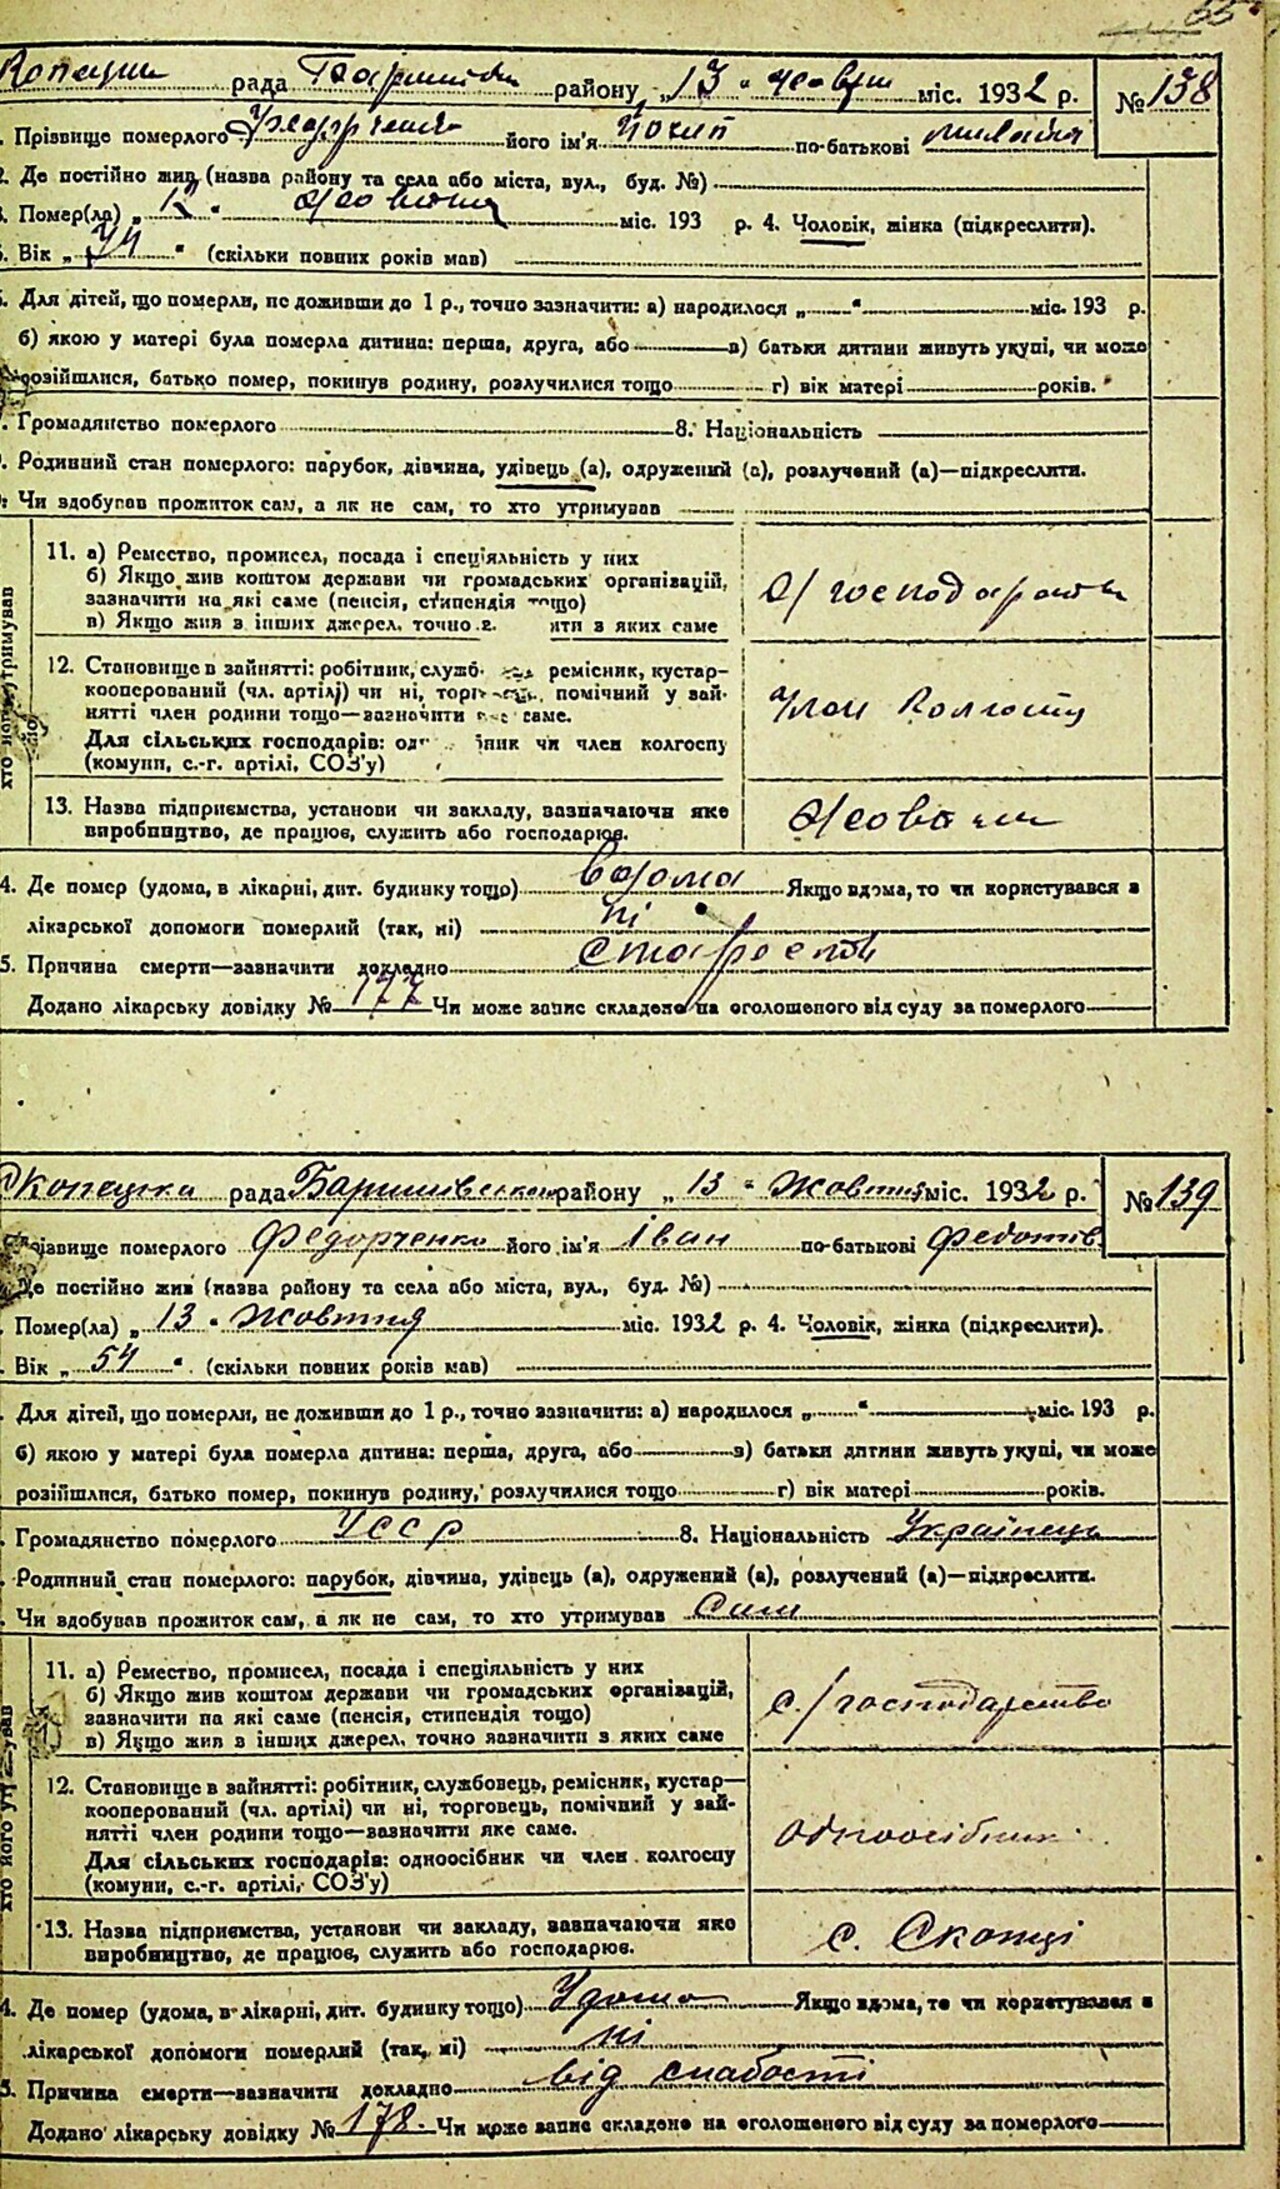 рада району „13“ міс. 1932 р. № 138
Прізвище померлого його ім'я по-батькові
2. Де постійно жив (назва району та села або міста, вул., буд. №)
Помер(ла) „ “ міс. 193 р. 4. Чоловік, жінка (підкреслити).
Вік „74“ (скільки повних років мав)
Для дітей, що померли, не доживши до 1 р., точно зазначити: а) народилося „ “ міс. 193 р.
б) якою у матері була померла дитина: перша, друга, або в) батьки дитини живуть укупі, чи може
розійшлися, батько помер, покинув родину, розлучилися тощо г) вік матері років.
Громадянство померлого 8. Національність
Родинний стан померлого: парубок, дівчина, удівець (а), одружений (а), розлучений (а)—підкреслити.
Чи здобував прожиток сам, а як не сам, то хто утримував
11. а) Ремество, промисел, посада і спеціяльність у них
б) Якщо жив коштом держави чи громадських організацій,
зазначити на які саме (пенсія, стипендія тощо)
в) Якщо жив з інших джерел, точно з ити з яких саме
12. Становище в зайнятті: робітник, служб ремісник, кустар-
кооперований (чл. артілі) чи ні, торг помічний у зай-
нятті член родини тощо—зазначити саме.
член колгоспу
Для сільських господарів: од ник чи член колгоспу
(комуни, с.-г. артілі, СОЗ'у)
13. Назва підприємства, установи чи закладу, зазначаючи яке
виробництво, де працює, служить або господарює.
4. Де помер (удома, в лікарні, дит. будинку тощо) вдома Якщо вдома, то чи користувався з
лікарської допомоги померлий (так, ні) ні
5. Причина смерти—зазначити докладно
Додано лікарську довідку № 177 Чи може запис складено на оголошеного від суду за померлого
Скопецка рада Баришівського району „13“ Жовтня міс. 1932 р. № 139
ізвище померлого Федорченко його ім'я Іван по-батькові Федотів
Де постійно жив (назва району та села або міста, вул., буд. №)
Помер(ла) „13“ Жовтня міс. 1932 р. 4. Чоловік, жінка (підкреслити).
Вік „54“ (скільки повних років мав)
Для дітей, що померли, не доживши до 1 р., точно зазначити: а) народилося „ “ міс. 193 р.
б) якою у матері була померла дитина: перша, друга, або в) батьки дитини живуть укупі, чи може
розійшлися, батько помер, покинув родину, розлучилися тощо г) вік матері років.
Громадянство померлого УССР 8. Національність Українець
Родинний стан померлого: парубок, дівчина, удівець (а), одружений (а), розлучений (а)—підкреслити.
Чи здобував прожиток сам, а як не сам, то хто утримував Сам
11. а) Ремество, промисел, посада і спеціяльність у них
б) Якщо жив коштом держави чи громадських організацій,
зазначити на які саме (пенсія, стипендія тощо)
в) Якщо жив з інших джерел, точно зазначити з яких саме
с./господарство
12. Становище в зайнятті: робітник, службовець, ремісник, кустар—
кооперований (чл. артілі) чи ні, торговець, помічний у зай-
нятті член родини тощо—зазначити яке саме.
Для сільських господарів: одноосібник чи член колгоспу
(комуни, с.-г. артілі, СОЗ'у)
одноосібник
13. Назва підприємства, установи чи закладу, зазначаючи яке
виробництво, де працює, служить або господарює.
с. Скопці
4. Де помер (удома, в лікарні, дит. будинку тощо) Удома Якщо вдома, то чи користувався з
лікарської допомоги померлий (так, ні) ні
5. Причина смерти—зазначити докладно від слабості
Додано лікарську довідку № 178. Чи може запис складено на оголошеного від суду за померлого